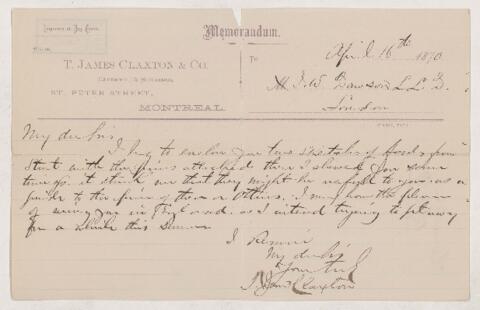 Importers of Dry Goods.
Memorandum.
April 16th 1870
T. JAMES CLAXTON & CO.
To
ST. PETER STREET,
MONTREAL.
J. W. Dawson L.L.D.
London
My dear Sir
I beg to enclose you two sketches of
with the prices attached then I showed you some
time ago. it struck me that they might be useful to you as a
guide to the price of those or others. I may have the pleasure
of seeing you in England. as I intend trying to get away
for a while this summer
I Remain
My dear Sir
Yours truly
T James Claxton